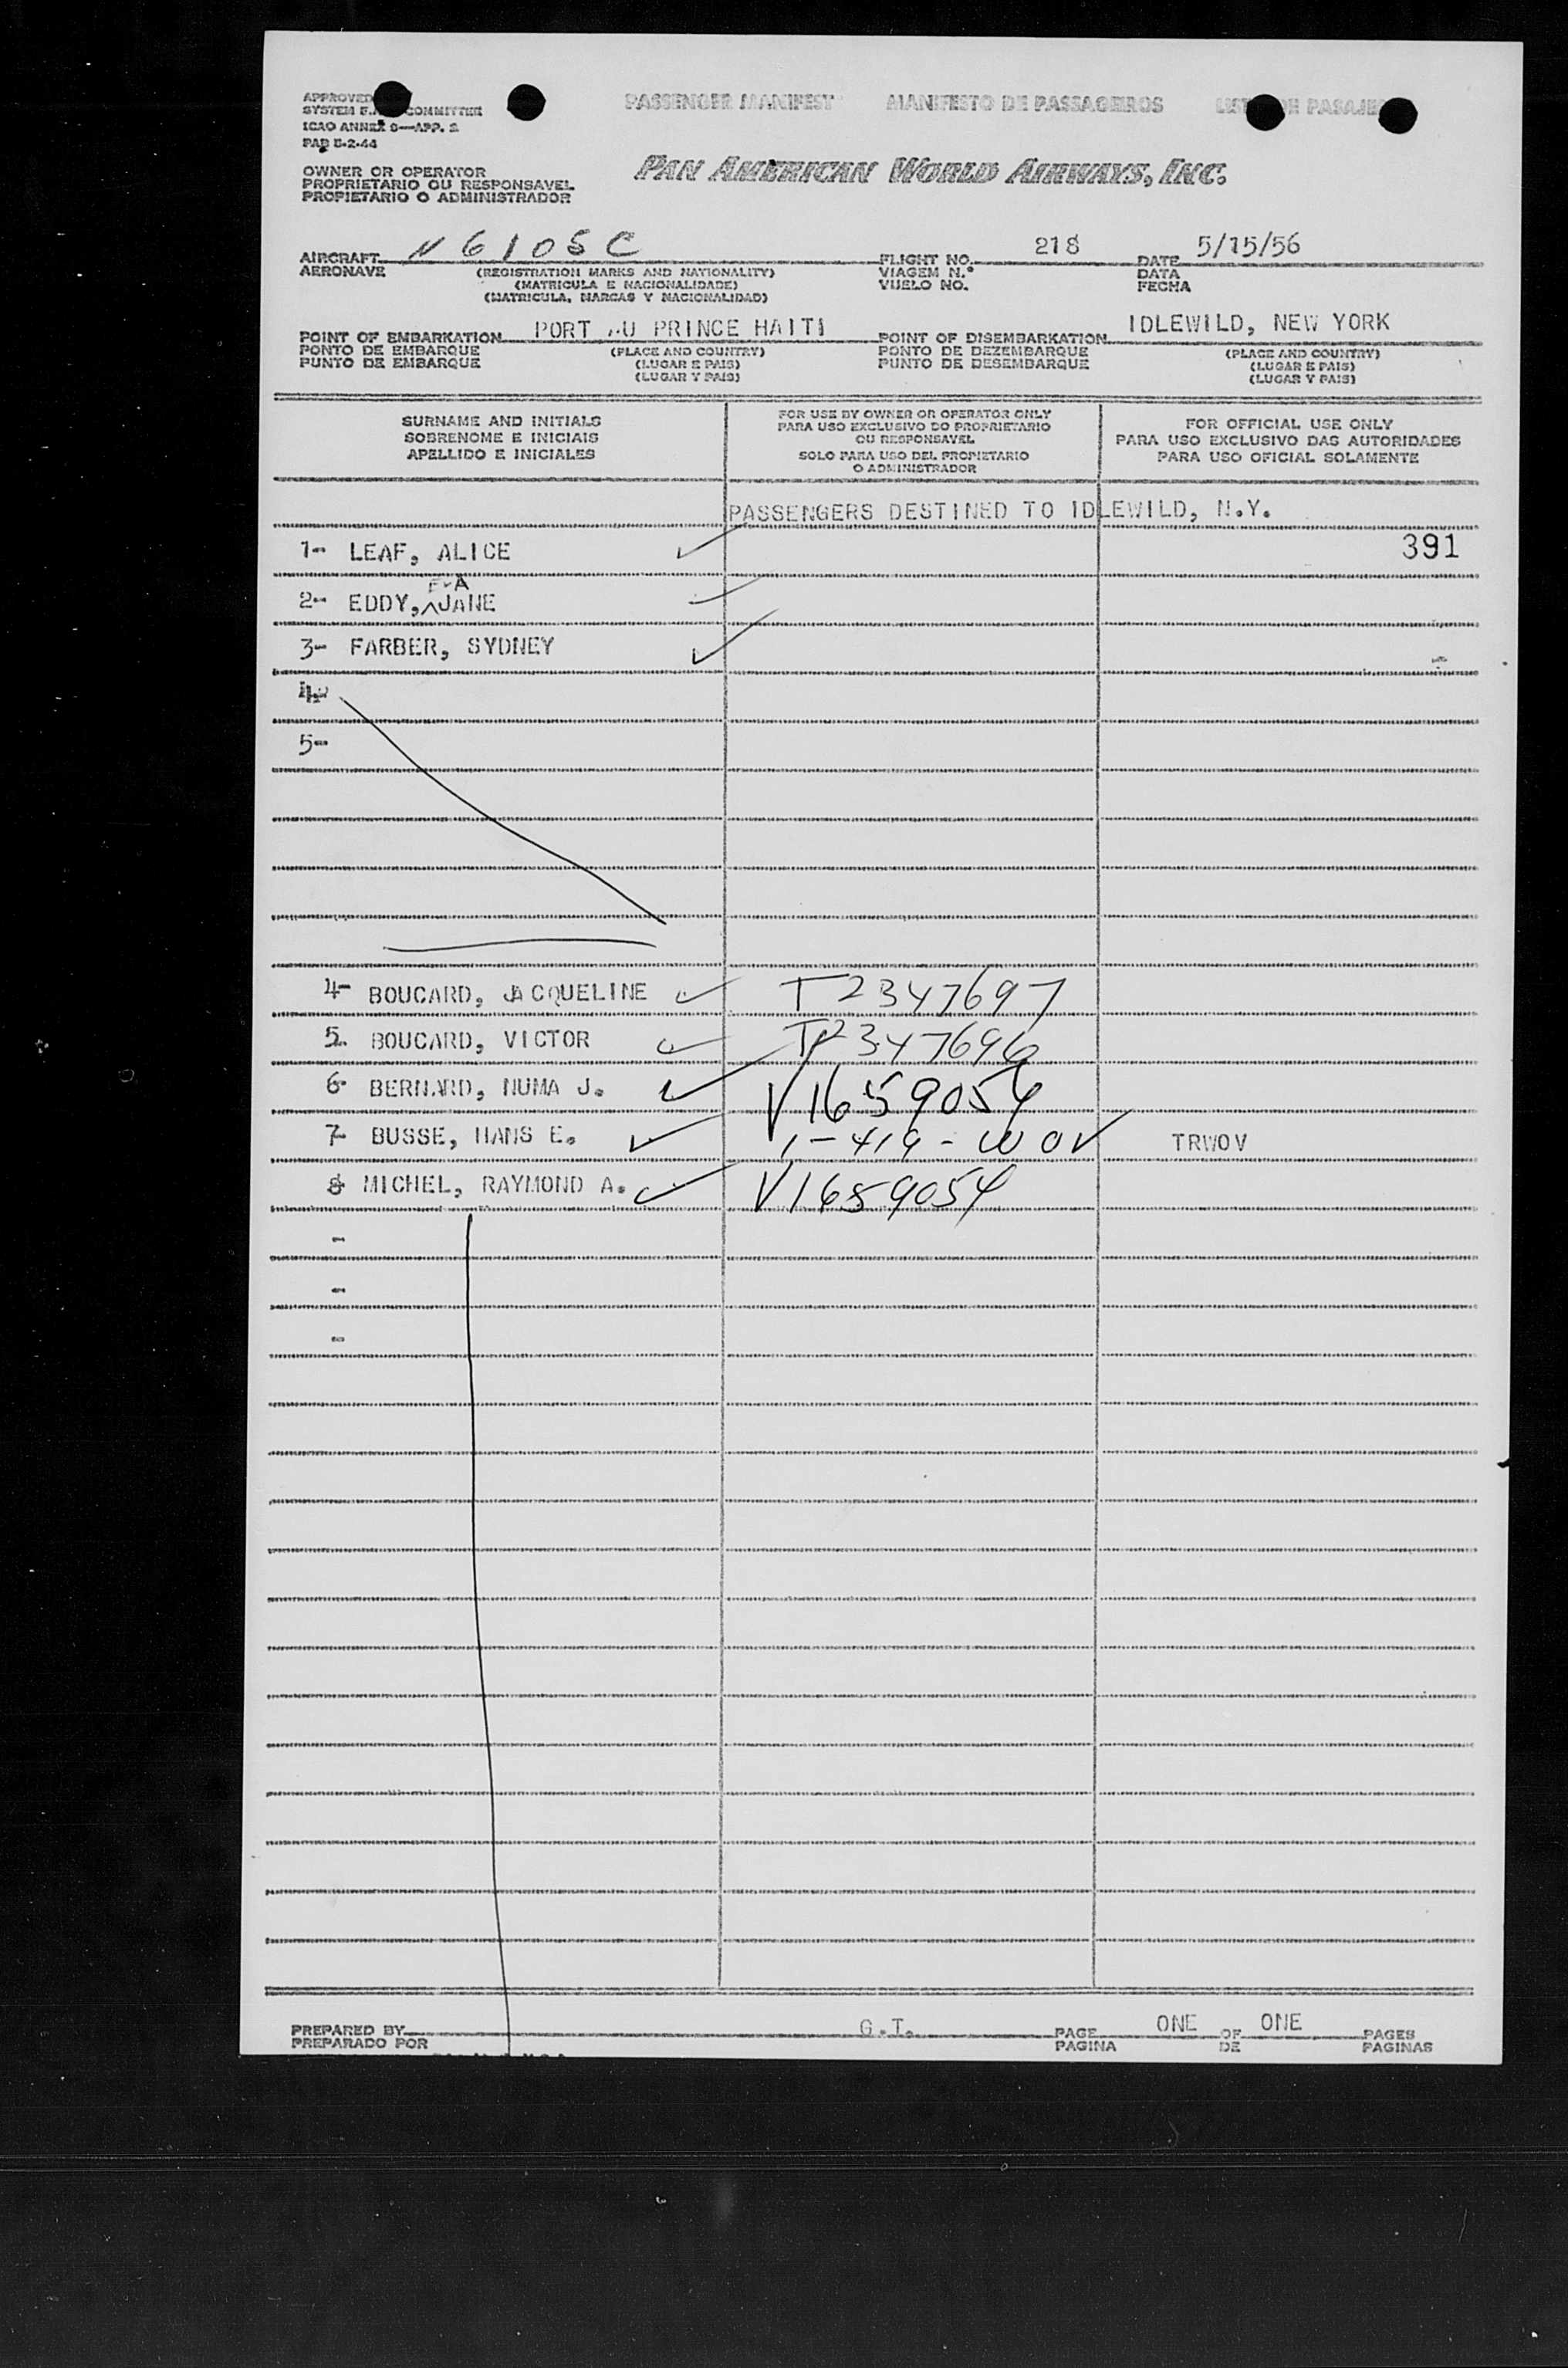 PASSENGER MANIFEST MANIFESTO DE PASSAGEIROS DE
APPROVED
SYSTEM COMMITTEE
ICAO ANNEX 9—APP. 2
PAB 5-2-44
PAN AMERICAN WORLD AIRWAYS, INC.
OWNER OR OPERATOR
PROPRIETARIO OU RESPONSAVEL
PROPIETARIO O ADMINISTRADOR
AIRCRAFT N6105C FLIGHT NO. 218 DATE 5/15/56
AERONAVE (REGISTRATION MARKS AND NATIONALITY) VIAGEM N.° DATA
(MATRICULA E NACIONALIDADE) VUELO NO. FECHA
(MATRICULA, MARCAS Y NACIONALIDAD)
POINT OF EMBARKATION PORT AU PRINCE HAITI POINT OF DISEMBARKATION IDLEWILD, NEW YORK
PONTO DE EMBARQUE (PLACE AND COUNTRY) PONTO DE DEZEMBARQUE (PLACE AND COUNTRY)
PUNTO DE EMBARQUE (LUGAR E PAIS) PUNTO DE DESEMBARQUE (LUGAR E PAIS)
(LUGAR Y PAIS) (LUGAR Y PAIS)
SURNAME AND INITIALS
SOBRENOME E INICIAIS
APELLIDO E INICIALES
FOR USE BY OWNER OR OPERATOR ONLY
PARA USO EXCLUSIVO DO PROPRIETARIO
OU RESPONSAVEL
SOLO PARA USO DEL PROPIETARIO
O ADMINISTRADOR
FOR OFFICIAL USE ONLY
PARA USO EXCLUSIVO DAS AUTORIDADES
PARA USO OFICIAL SOLAMENTE
PASSENGERS DESTINED TO IDLEWILD, N.Y.
1- LEAF, ALICE 391
EVA
2- EDDY, JANE
3- FARBER, SYDNEY
4-
5-
4- BOUCARD, JACQUELINE T2347697
5. BOUCARD, VICTOR T2347696
6- BERNARD, NUMA J. V1659054
7- BUSSE, HANS E. 1-419-WOV TRWOV
8 MICHEL, RAYMOND A. V1659054
PREPARED BY G.T. PAGE ONE OF ONE PAGES
PREPARADO POR PAGINA DE PAGINAS